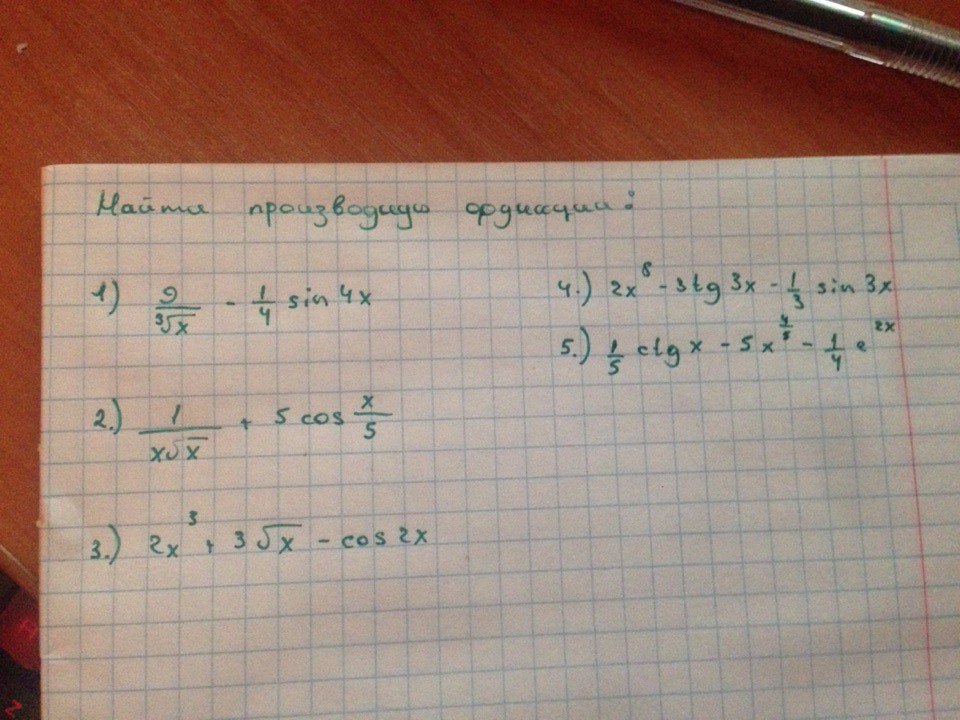 Найти производную функции:
1) 9/∛x - 1/4 sin 4x
2.) 1/(x√x) + 5 cos x/5
3.) 2x³ + 3√x - cos 2x
4.) 2x⁸ - 3tg 3x - 1/3 sin 3x
5.) 1/5 ctg x - 5x^(4/5) - 1/4 e^(2x)